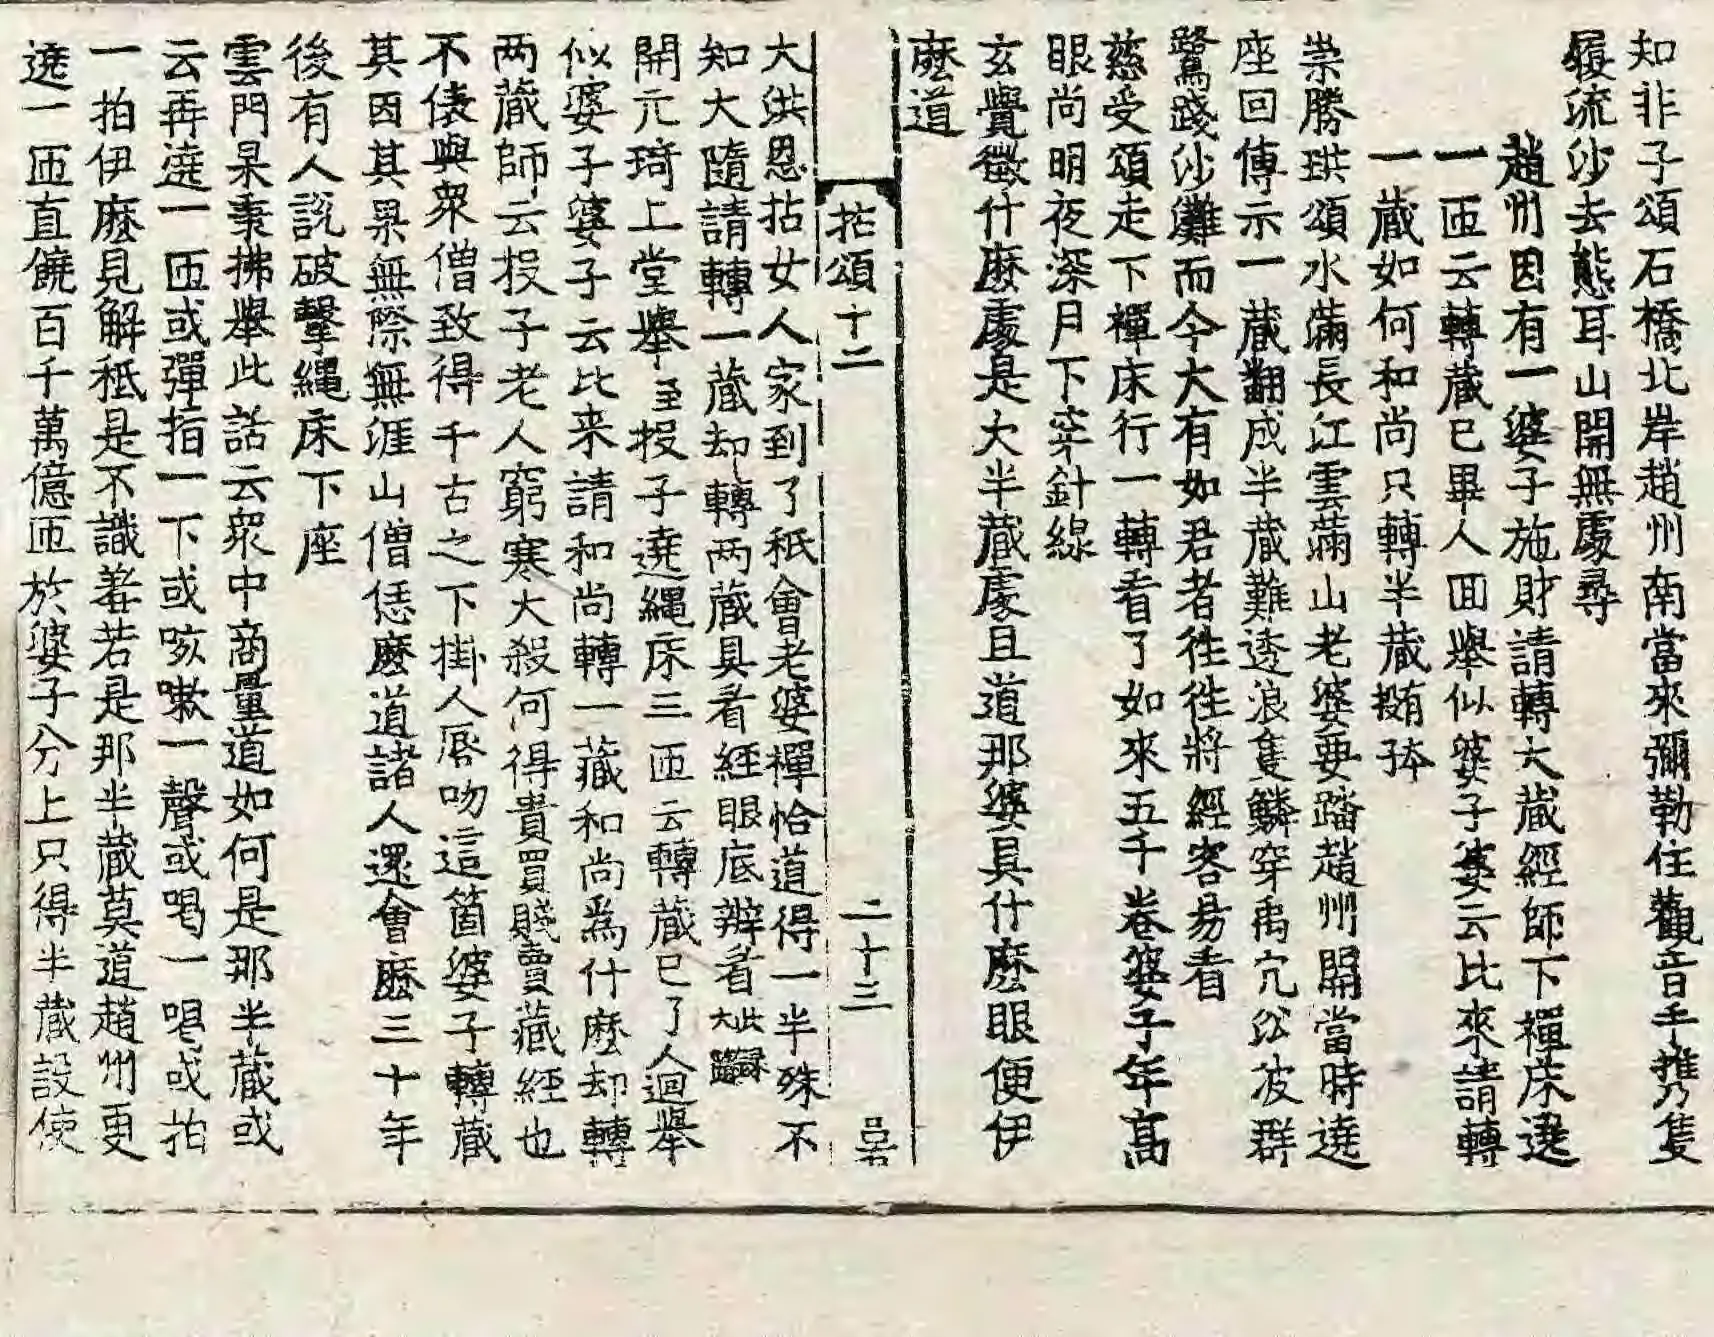 知非子頌石橋北岸趙州南當來彌勒住觀音手携隻
履流沙去熊耳山開無處尋
趙州因有一婆子施財請轉大藏經師下禪床遶
一匝云轉藏已畢人回舉似婆子婆云比來請轉
一藏如何和尚只轉半藏
崇勝珙頌水滿長江雲滿山老婆要踏趙州關當時遶
座回傳示一藏翻成半藏難透浪隻鱗穿禹穴㳂波群
鷺踐沙灘而今大有如君者徃徃將經容易看
慈受頌走下禪床行一轉看了如來五千卷婆子年高
眼尚明夜深月下穿針線
玄覺徵什麽處是欠半藏處且道那婆具什麽眼便伊
麽道
拈頌十二 二十三
大洪恩拈女人家到了秖會老婆禪恰道得一半殊不
知大隨請轉一藏却轉两藏具看經眼底辨看此録大隨
開元琦上堂舉至投子遶繩床三匝云轉藏已了人迴舉
似婆子婆子云比来請和尚轉一藏和尚爲什麽却轉
两藏師云投子老人窮寒大殺何得貴買賤賣藏經也
不俵與衆僧致得千古之下掛人唇吻這箇婆子轉藏
其因其果無際無涯山僧恁麽道諸人還會麽三十年
後有人說破擊繩床下座
雲門杲秉拂舉此話云衆中商量道如何是那半藏或
云再遶一匝或彈指一下或咳嗽一聲或喝一喝或拍
一拍伊麽見解秖是不識羞若是那半藏莫道趙州更
遶一匝直饒百千萬億匝於婆子分上只得半藏設使